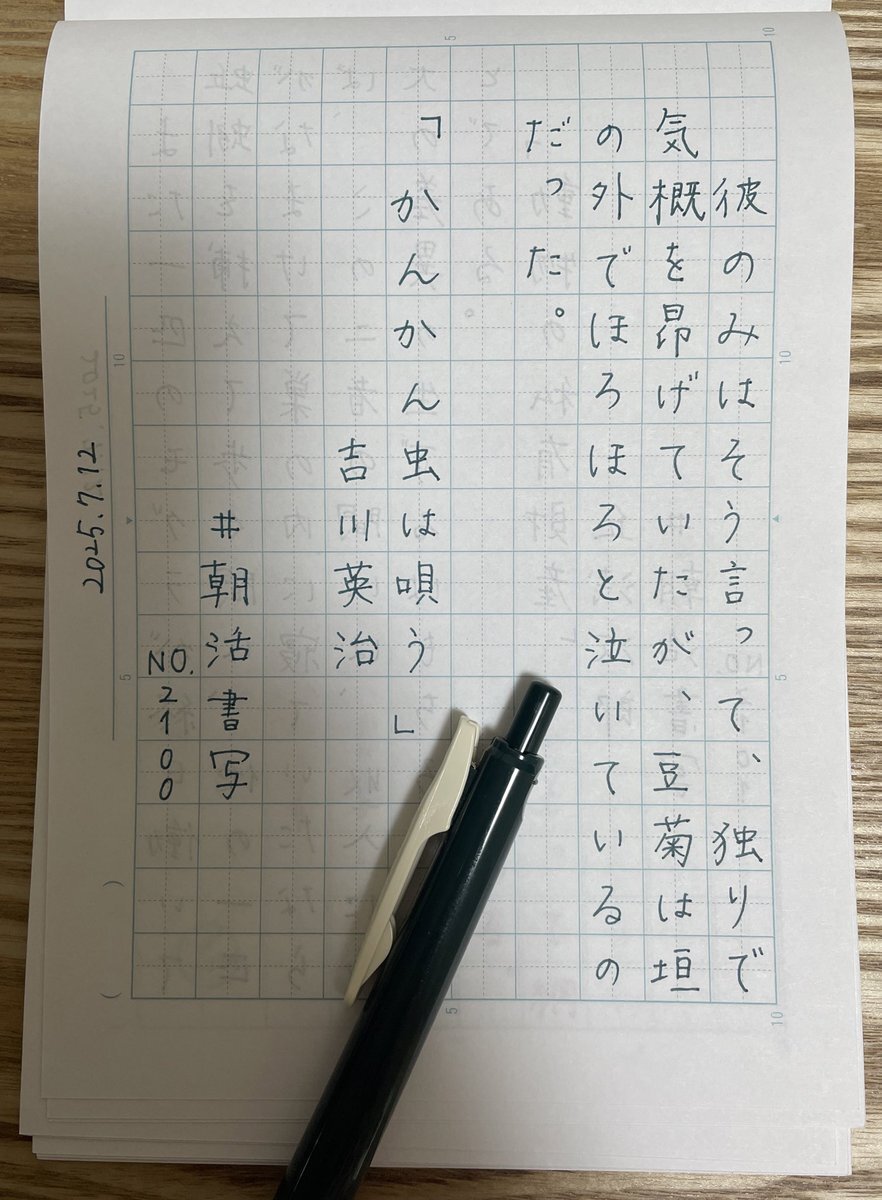 彼のみはそう言って、独りで
気概を昂げていたが、豆菊は垣
の外でほろほろと泣いているの
だった。
「かんかん虫は唄う」
吉川英治
#朝活書写
NO.2100
2025.7.12